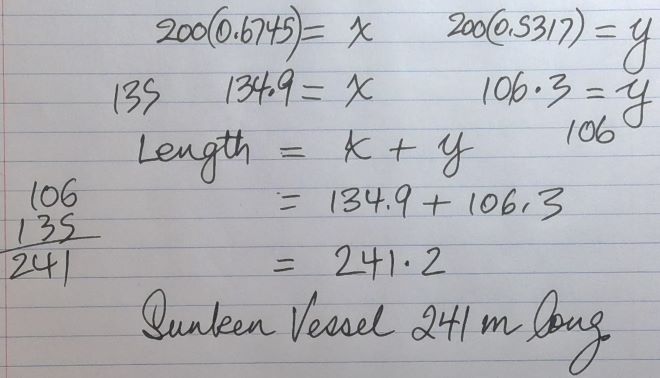 200(0.6745) = x 200(0.5317) = y
135 134.9 = x 106.3 = y
106
Length = x + y
106 = 134.9 + 106.3
135
241 = 241.2
Sunken Vessel 241 m long